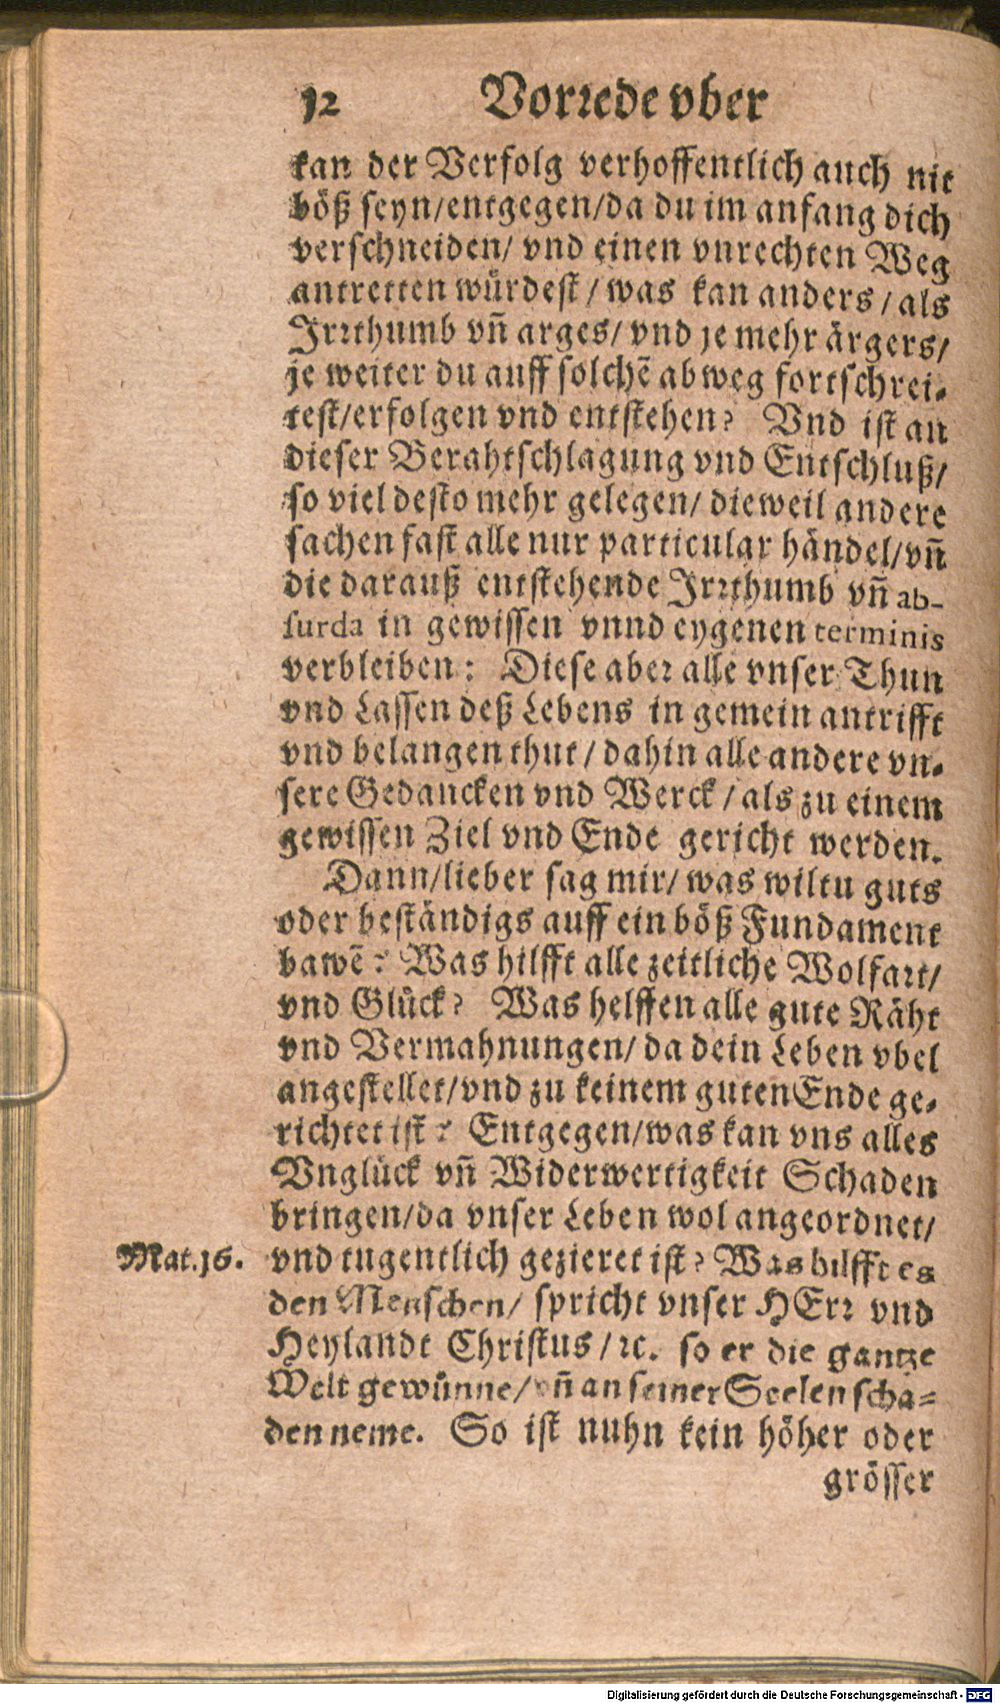 12 Vorrede vber
kan der Verfolg verhoffentlich auch nit
böß seyn/entgegen/da du im anfang dich
verschneiden/ vnd einen vnrechten Weg
antretten würdest/was kan anders/als
Irrthumb vñ arges/ vnd je mehr ärgers/
je weiter du auff solchẽ abweg fortschrei-
test/erfolgen vnd entstehen? Vnd ist an
dieser Berahtschlagung vnd Entschluß/
so viel desto mehr gelegen/ dieweil andere
sachen fast alle nur particular händel/vñ
die darauß entstehende Irrthumb vñ ab-
surda in gewissen vnnd eygenen terminis
verbleiben: Diese aber alle vnser Thun
vnd Lassen deß Lebens in gemein antrifft
vnd belangen thut/dahin alle andere vn-
sere Gedancken vnd Werck/als zu einem
gewissen Ziel vnd Ende gericht werden.
Dann/lieber sag mir/ was wiltu guts
oder beständigs auff ein böß Fundament
bawẽ? Was hilfft alle zeitliche Wolfart/
vnd Glück? Was helffen alle gute Räht
vnd Vermahnungen/ da dein Leben vbel
angestellet/vnd zu keinem guten Ende ge-
richtet ist? Entgegen/was kan vns alles
Vnglück vñ Widerwertigkeit Schaden
bringen/da vnser Leben wol angeordnet/
Mat.16. vnd tugentlich gezieret ist? Was hilfft es
den Menschen/ spricht vnser HErr vnd
Heylandt Christus/ꝛc. so er die gantze
Welt gewünne/vñ an seiner Seelen scha-
den neme. So ist nuhn kein höher oder
grösser
Digitalisierung gefördert durch die Deutsche Forschungsgemeinschaft - DFG